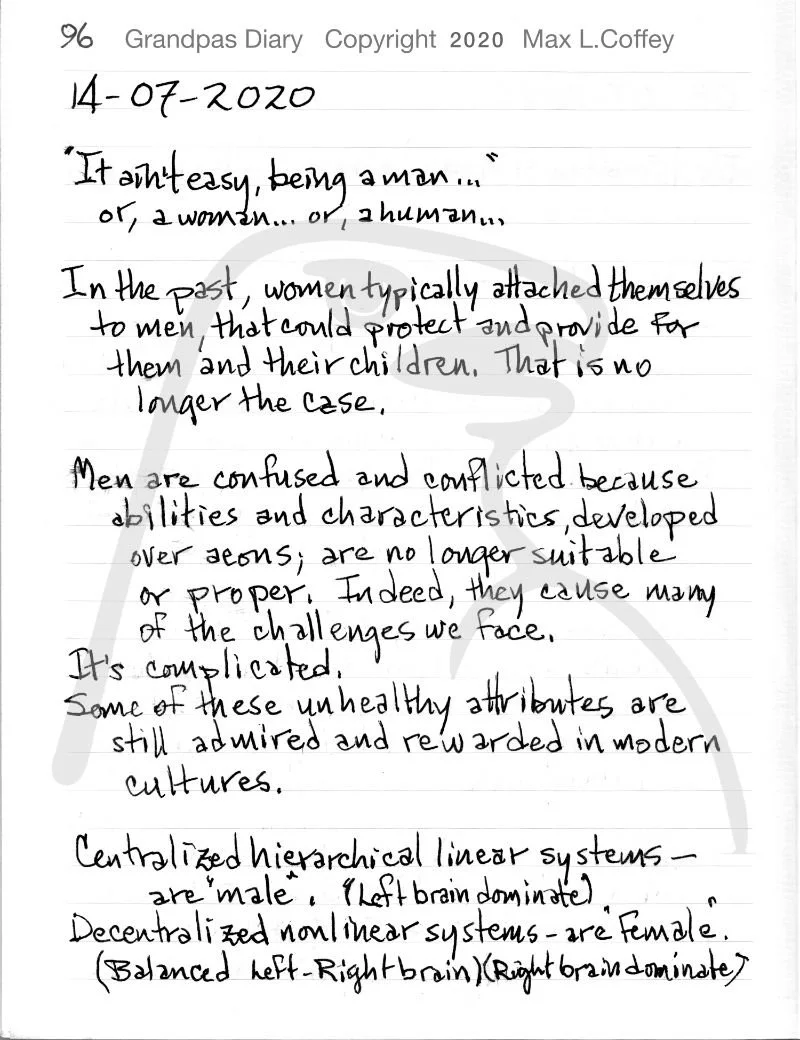 96 Grandpas Diary Copyright 2020 Max L.Coffey
14-07-2020
"It ain't easy, being a man..."
or, a woman... or, a human...
In the past, women typically attached themselves
to men, that could protect and provide for
them and their children. That is no
longer the case.
Men are confused and conflicted because
abilities and characteristics, developed
over aeons; are no longer suitable
or proper. Indeed, they cause many
of the challenges we face.
It's complicated.
Some of these unhealthy attributes are
still admired and rewarded in modern
cultures.
Centralized hierarchical linear systems —
are "male". (Left brain dominate)
Decentralized nonlinear systems - are "female".
(Balanced Left-Right brain) (Right brain dominate)